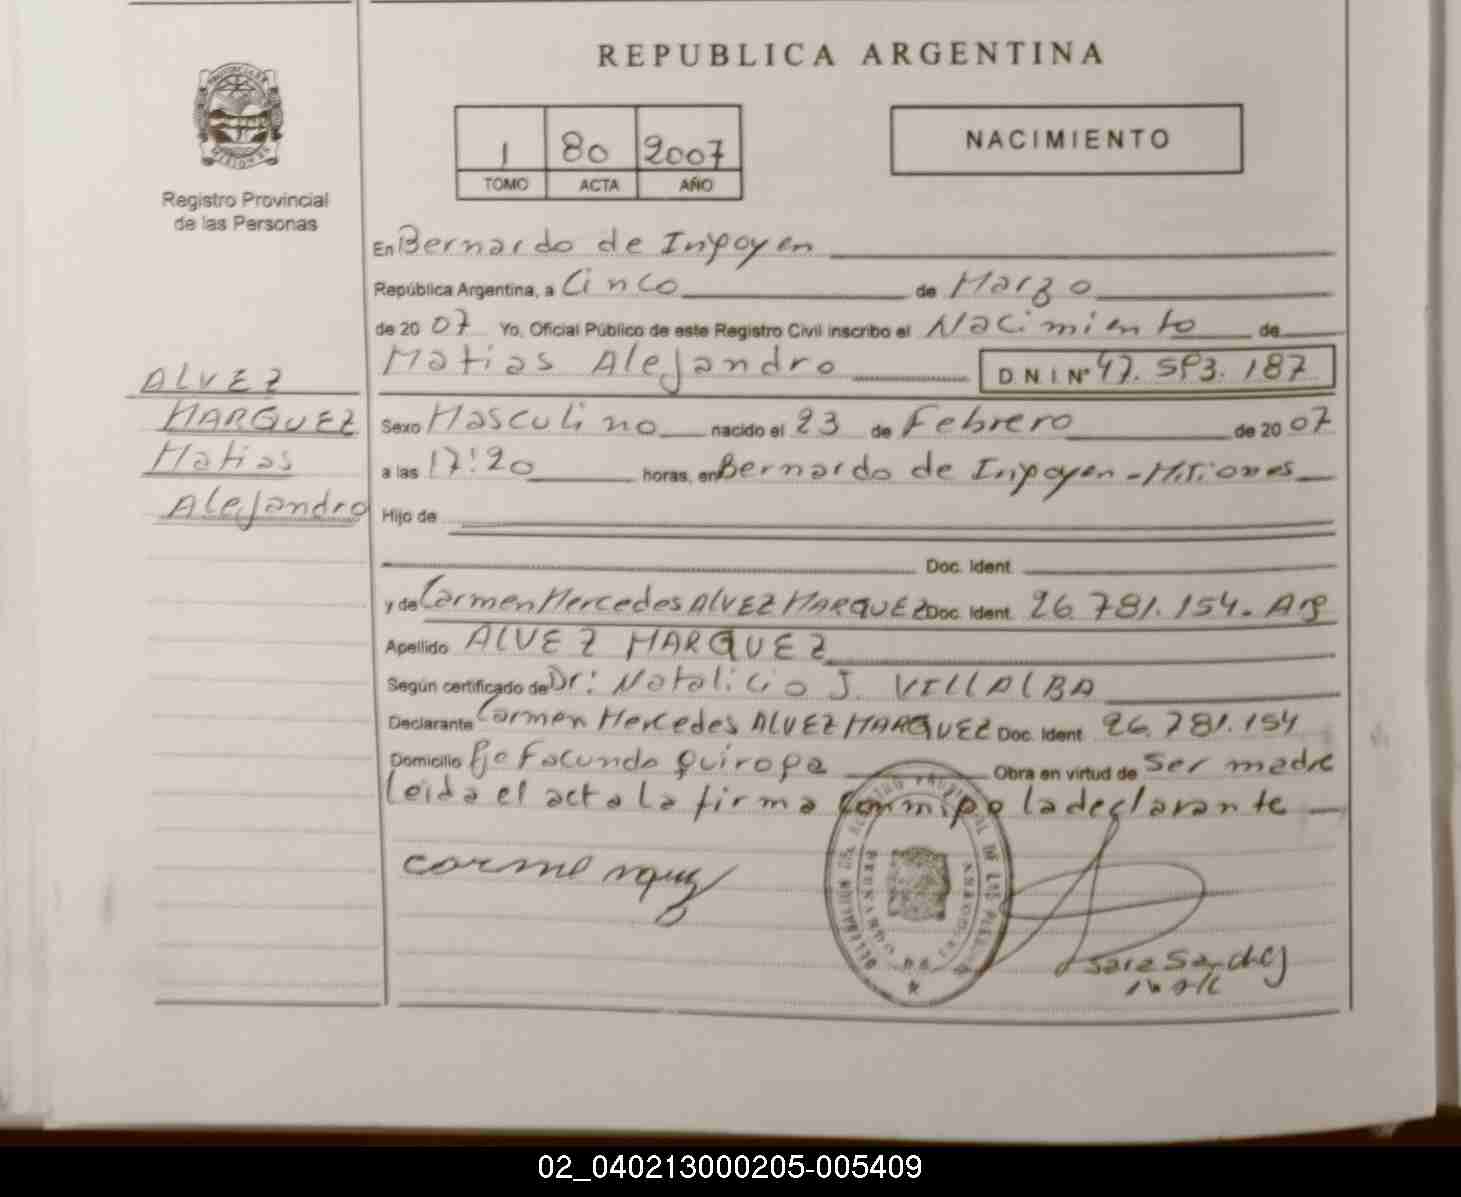 REPUBLICA ARGENTINA
1 80 2007
TOMO ACTA AÑO
NACIMIENTO
Registro Provincial
de las Personas
En Bernardo de Irigoyen
República Argentina, a Cinco de Marzo
de 2007 Yo, Oficial Público de este Registro Civil inscribo el Nacimiento de
Matias Alejandro D N I Nº 47. 593. 187
ALVEZ
MARQUEZ
Matias
Alejandro
Sexo Masculino nacido el 23 de Febrero de 2007
a las 17:20 horas, en Bernardo de Irigoyen - Misiones
Hijo de
Doc. Ident
y de Carmen Mercedes ALVEZ MARQUEZ Doc. Ident. 26.781.154. Arg
Apellido ALVEZ MARQUEZ
Según certificado de Dr: Natalicio J. VILLALBA
Declarante Carmen Mercedes ALVEZ MARQUEZ Doc. Ident 26.781.154
Domicilio Bº Facundo Quiroga Obra en virtud de Ser madre
leida el acta la firma conmigo la declarante
Sara Sanchez
02_040213000205-005409